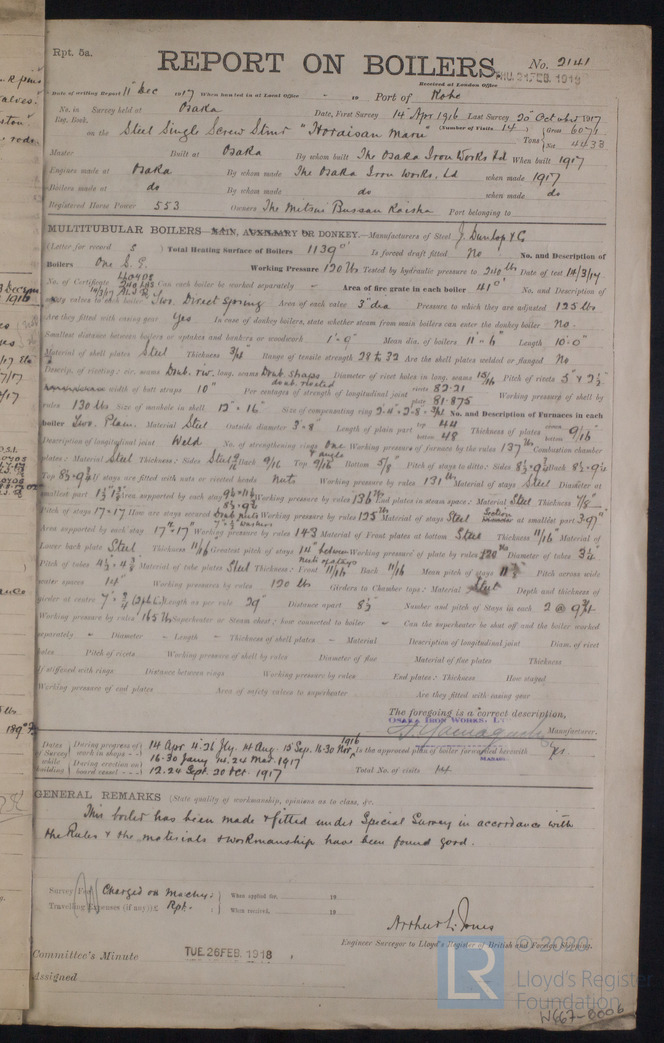 Rpt. 5a.
REPORT ON BOILERS.
No. 2141
Received at London Office THU. 21 FEB. 1918
Date of writing Report 11th Dec 1917 When handed in at Local Office 19 Port of Kobe
No. in Reg. Book. Survey held at Osaka Date, First Survey 14th Apr 1916 Last Survey 20th October 1917
on the Steel Single Screw Stmr "Hordisan Maru" (Number of Visits 14) Tons Gross 6071 Net 4438
Master Built at Osaka By whom built The Osaka Iron Works Ld When built 1917
Engines made at Osaka By whom made The Osaka Iron Works, Ld when made 1917
Boilers made at do By whom made do when made do
Registered Horse Power 553 Owners The Mitsui Bussan Kaisha Port belonging to
MULTITUBULAR BOILERS MAIN, AUXILIARY OR DONKEY.—Manufacturers of Steel J. Dunlop & Co
(Letter for record S) Total Heating Surface of Boilers 1139 Is forced draft fitted No No. and Description of
Boilers One S. E. Working Pressure 120 lbs Tested by hydraulic pressure to 240 lbs Date of test 14/3/17
No. of Certificate Can each boiler be worked separately - Area of fire grate in each boiler 41 No. and Description of
safety valves to each boiler Two. Direct Spring Area of each valve 3" dia Pressure to which they are adjusted 125 lbs
Are they fitted with easing gear Yes In case of donkey boilers, state whether steam from main boilers can enter the donkey boiler No.
Smallest distance between boilers or uptakes and bunkers or woodwork 1'-9" Mean dia. of boilers 11'-6" Length 10'-0"
Material of shell plates Steel Thickness 3/4 Range of tensile strength 28 to 32 Are the shell plates welded or flanged No
Descrip. of riveting: cir. seams Doub. riv. long. seams Doub. straps double riveted Diameter of rivet holes in long. seams 15/16 Pitch of rivets
width of butt straps 10" Per centages of strength of longitudinal joint rivets 82.21 plate 81.875 Working pressure of shell by
rules 130 lbs Size of manhole in shell 12" x 16" Size of compensating ring No. and Description of Furnaces in each
boiler Two. Plain. Material Steel Outside diameter 3'-8" Length of plain part top 44 bottom 48 Thickness of plates crown bottom 9/16"
Description of longitudinal joint Weld No. of strengthening rings One Working pressure of furnace by the rules 137 lbs Combustion chamber
plates: Material Steel Thickness: Sides Back 9/16 Top 9/16 Bottom 5/8" Pitch of stays to ditto: Sides Back
Top If stays are fitted with nuts or riveted heads Nuts Working pressure by rules 131 lbs Material of stays Steel Diameter at
smallest part Area supported by each stay Working pressure by rules 136 lbs End plates in steam space: Material Steel Thickness 7/8"
Pitch of stays 17 x 17 How are stays secured Doub. nuts Working pressure by rules 125 lbs Material of stays Steel at smallest part
Area supported by each stay 17" x 17" Working pressure by rules 143 Material of Front plates at bottom Steel Thickness 11/16" Material of
Lower back plate Steel Thickness 11/16 Greatest pitch of stays 14" Working pressure of plate by rules 120 lbs Diameter of tubes 3 1/4
Pitch of tubes Material of tube plates Steel Thickness: Front 11/16 Back 11/16 Mean pitch of stays Pitch across wide
water spaces 14" Working pressures by rules 120 lbs Girders to Chamber tops: Material Steel Depth and thickness of
girder at centre Length as per rule 29" Distance apart Number and pitch of Stays in each
Working pressure by rules 165 lbs Superheater or Steam chest; how connected to boiler - Can the superheater be shut off and the boiler worked
separately - Diameter - Length - Thickness of shell plates - Material Description of longitudinal joint Diam. of rivet
holes Pitch of rivets Working pressure of shell by rules Diameter of flue Material of flue plates Thickness
If stiffened with rings Distance between rings Working pressure by rules End plates: Thickness How stayed
Working pressure of end plates Area of safety valves to superheater Are they fitted with easing gear
The foregoing is a correct description,
OSAKA IRON WORKS, LD. Manufacturer.
Dates of Survey while building During progress of work in shops 14 Apr. 4. 26 Jly. 14 Aug. 15 Sep. 16. 30 Nov. 1916 Is the approved plan of boiler forwarded herewith yes
During erection on board vessel 16. 30 Jany 14. 24 Mar. 1917
12. 24 Sept. 20 Oct. 1917 Total No. of visits 14
GENERAL REMARKS (State quality of workmanship, opinions as to class, &c.
This boiler has been made & fitted under Special Survey in accordance with
the Rules & the materials & workmanship have been found good.
Survey Fee Charged on Machy. When applied for, 19
Travelling Expenses (if any) £ Rpt. When received, 19
Arthur L. Jones
Engineer Surveyor to Lloyd's Register of British and Foreign Shipping.
Committee's Minute TUE. 26 FEB. 1918
Assigned
© 2020
LR
Lloyd's Register
Foundation
W667-0006